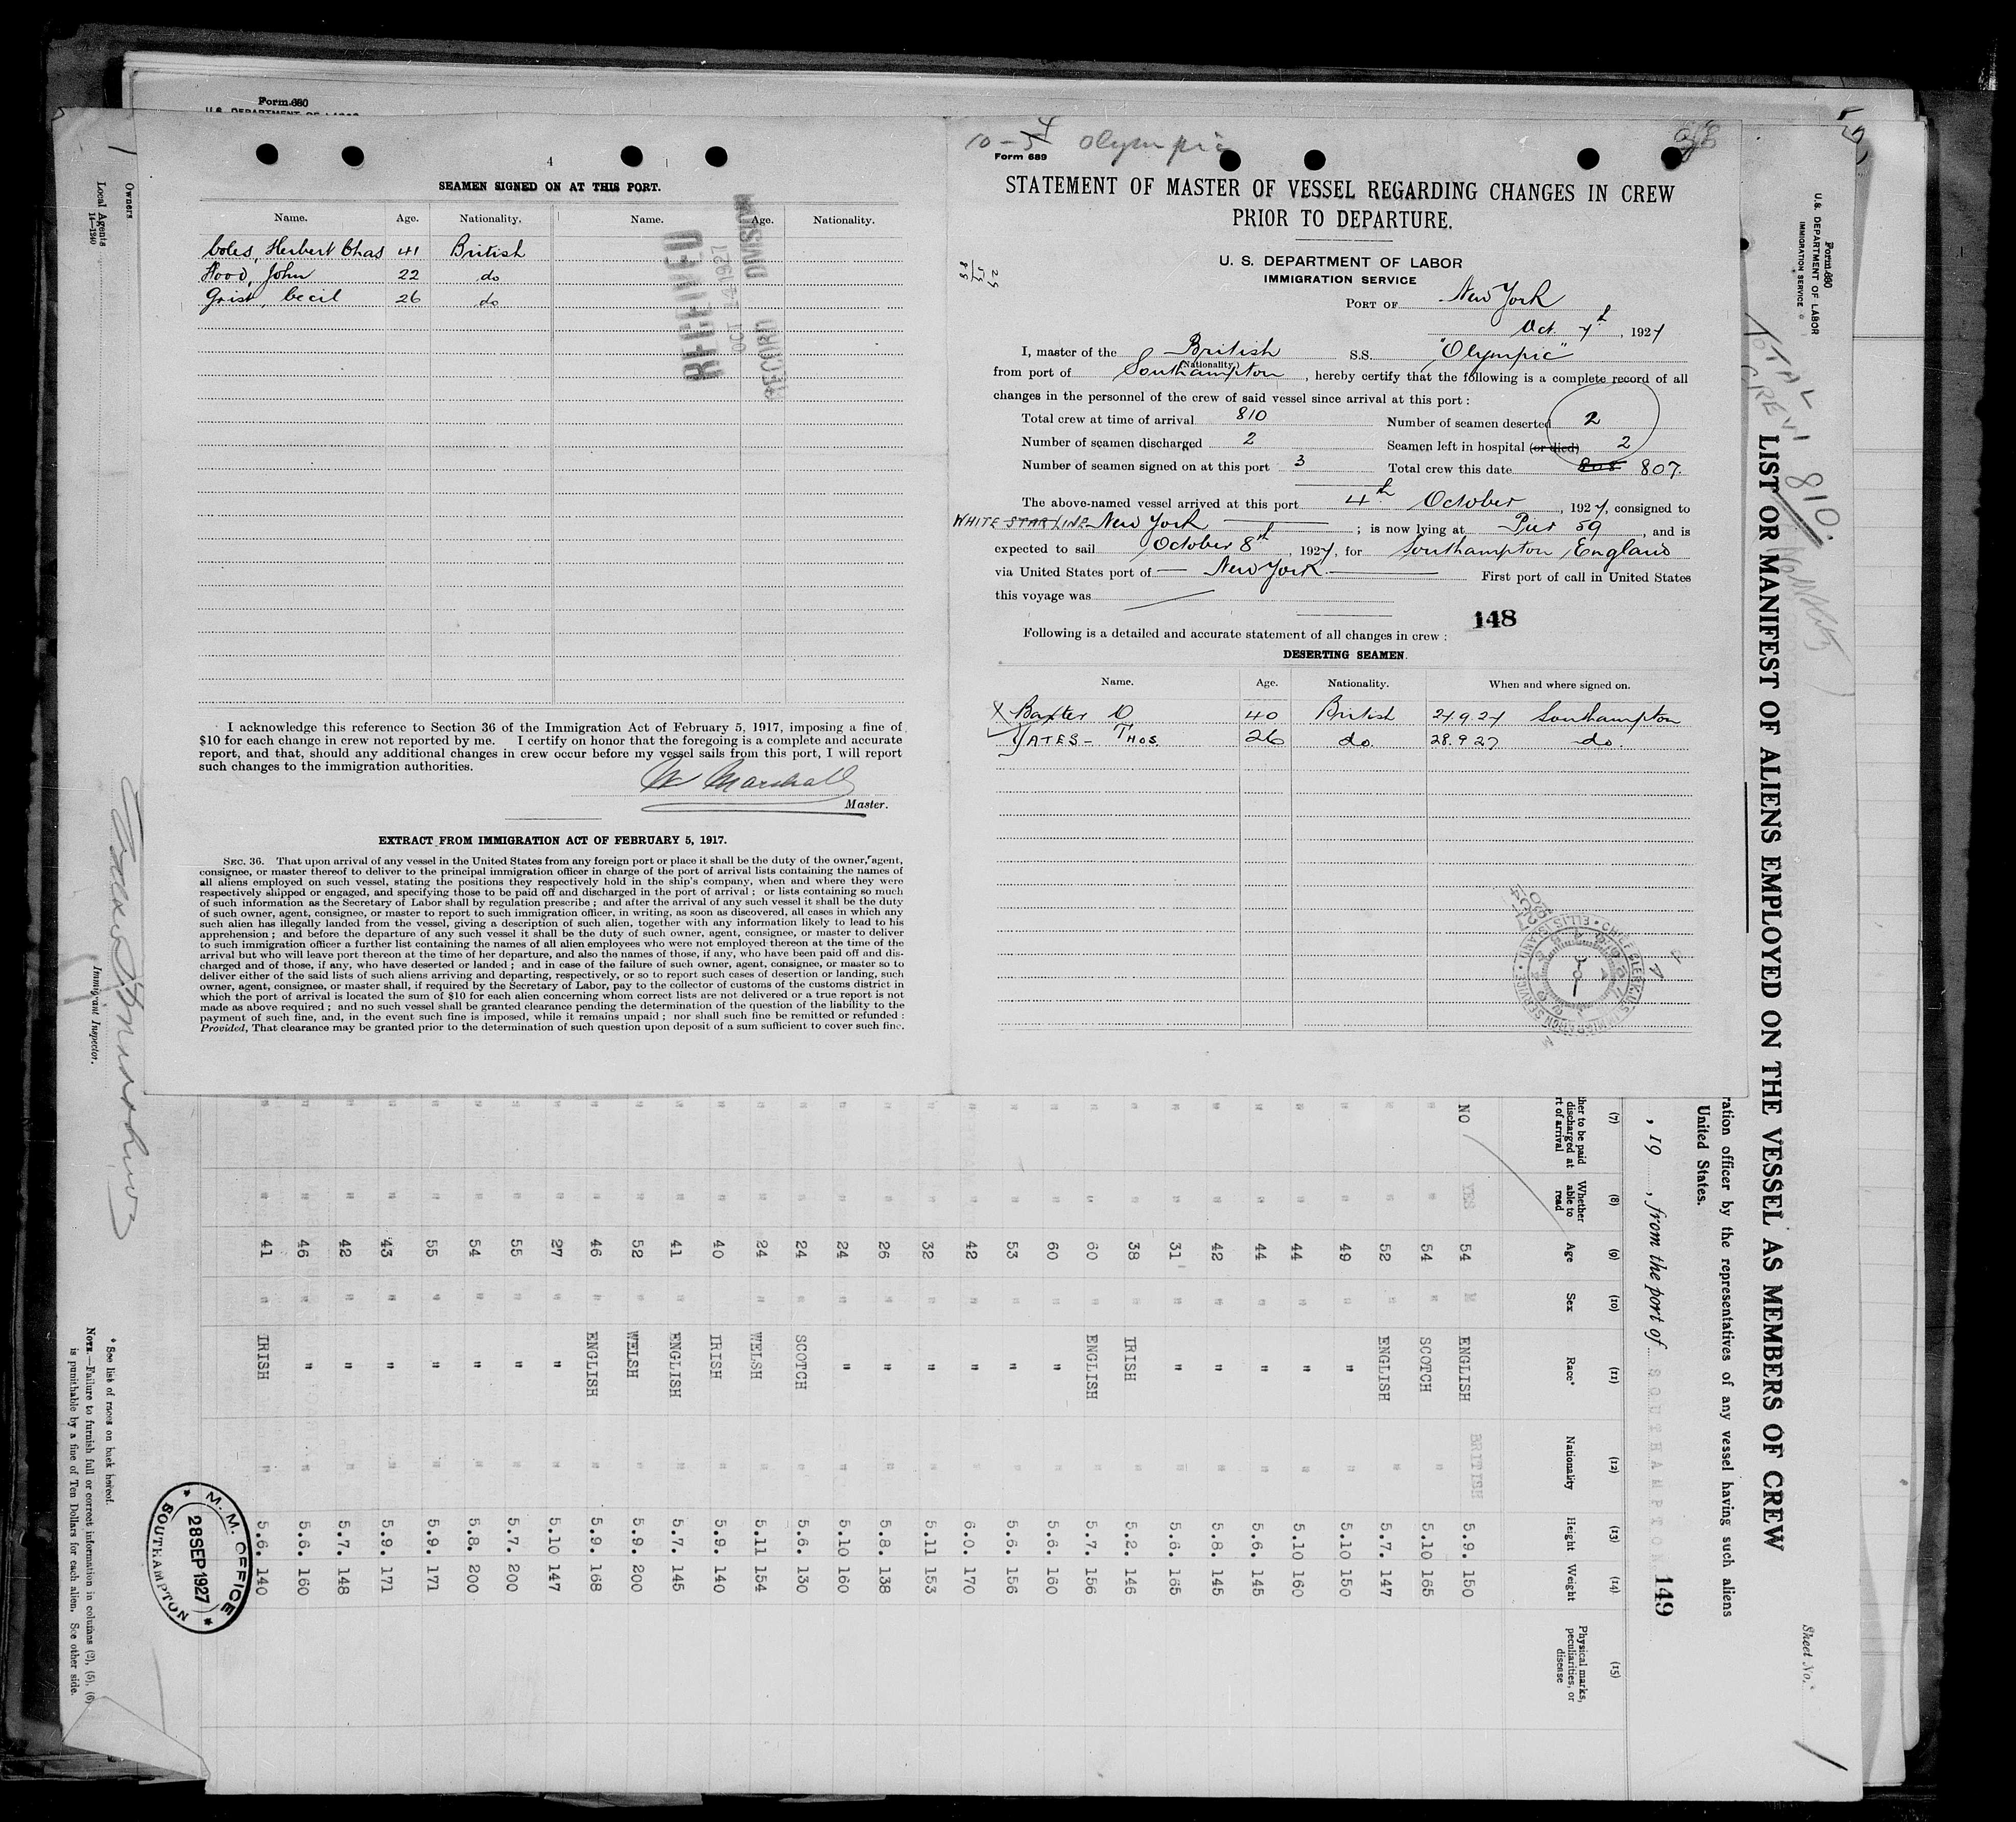 Form 680
U. S. DEPARTMENT OF LABOR
4
SEAMEN SIGNED ON AT THIS PORT.
Name. Age. Nationality. Name. Age. Nationality.
Coles, Herbert Chas 41 British
Hood, John 22 do
Grist, Cecil 26 do
RECEIVED
OCT 4 1927
DIVISION
I acknowledge this reference to Section 36 of the Immigration Act of February 5, 1917, imposing a fine of
$10 for each change in crew not reported by me. I certify on honor that the foregoing is a complete and accurate
report, and that, should any additional changes in crew occur before my vessel sails from this port, I will report
such changes to the immigration authorities.
W Marshall
Master.
EXTRACT FROM IMMIGRATION ACT OF FEBRUARY 5, 1917.
SEC. 36. That upon arrival of any vessel in the United States from any foreign port or place it shall be the duty of the owner, agent,
consignee, or master thereof to deliver to the principal immigration officer in charge of the port of arrival lists containing the names of
all aliens employed on such vessel, stating the positions they respectively hold in the ship's company, when and where they were
respectively shipped or engaged, and specifying those to be paid off and discharged in the port of arrival; or lists containing so much
of such information as the Secretary of Labor shall by regulation prescribe; and after the arrival of any such vessel it shall be the duty
of such owner, agent, consignee, or master to report to such immigration officer, in writing, as soon as discovered, all cases in which any
such alien has illegally landed from the vessel, giving a description of such alien, together with any information likely to lead to his
apprehension; and before the departure of any such vessel it shall be the duty of such owner, agent, consignee, or master to deliver
to such immigration officer a further list containing the names of all alien employees who were not employed thereon at the time of the
arrival but who will leave port thereon at the time of her departure, and also the names of those, if any, who have been paid off and dis-
charged and of those, if any, who have deserted or landed; and in case of the failure of such owner, agent, consignee, or master so to
deliver either of the said lists of such aliens arriving and departing, respectively, or so to report such cases of desertion or landing, such
owner, agent, consignee, or master shall, if required by the Secretary of Labor, pay to the collector of customs of the customs district in
which the port of arrival is located the sum of $10 for each alien concerning whom correct lists are not delivered or a true report is not
made as above required; and no such vessel shall be granted clearance pending the determination of the question of the liability to the
payment of such fine, and, in the event such fine is imposed, while it remains unpaid; nor shall such fine be remitted or refunded:
Provided, That clearance may be granted prior to the determination of such question upon deposit of a sum sufficient to cover such fine.
10-4 Olympic
Form 689
STATEMENT OF MASTER OF VESSEL REGARDING CHANGES IN CREW
PRIOR TO DEPARTURE.
U. S. DEPARTMENT OF LABOR
IMMIGRATION SERVICE
PORT OF New York
Oct. 7th, 1927
I, master of the British S.S. "Olympic"
Nationality
from port of Southampton, hereby certify that the following is a complete record of all
changes in the personnel of the crew of said vessel since arrival at this port:
Total crew at time of arrival 810 Number of seamen deserted 2
Number of seamen discharged 2 Seamen left in hospital (or died) 2
Number of seamen signed on at this port 3 Total crew this date 808 807.
The above-named vessel arrived at this port 4th October, 1927, consigned to
WHITE STAR LINE New York; is now lying at Pier 59, and is
expected to sail October 8th, 1927, for Southampton England
via United States port of New York First port of call in United States
this voyage was
148
Following is a detailed and accurate statement of all changes in crew:
DESERTING SEAMEN.
Name. Age. Nationality. When and where signed on.
X Baxter D 40 British 27.9.27 Southampton
YATES - THOS. 26 do. 28.9.27 do.
CHIEF CLERK U.S. IMMIGRATION SERVICE ELLIS ISLAND
Form 680
U. S. DEPARTMENT OF LABOR
IMMIGRATION SERVICE
Sheet No.
TOTAL CREW 810.
LIST OR MANIFEST OF ALIENS EMPLOYED ON THE VESSEL AS MEMBERS OF CREW
ration officer by the representatives of any vessel having such aliens
United States.
, 19 , from the port of SOUTHAMPTON
149
(7) (8) (9) (10) (11) (12) (13) (14) (15)
her to be paid discharged at rt of arrival
Whether able to read
Age
Sex
Race*
Nationality
Height
Weight
Physical marks, peculiarities, or disease
NO YES 54 M ENGLISH BRITISH 5.9. 150
" " 54 " SCOTCH " 5.10 165
" " 52 " ENGLISH " 5.7. 147
" " 49 " " " 5.10 150
" " 44 " " " 5.10 160
" " 44 " " " 5.6. 145
" " 42 " " " 5.8. 145
" " 31 " " " 5.6. 165
" " 38 " IRISH " 5.2. 146
" " 60 " ENGLISH " 5.7. 156
" " 60 " " " 5.6. 160
" " 53 " " " 5.6. 156
" " 42 " " " 6.0. 170
" " 32 " " " 5.11 153
" " 26 " " " 5.8. 138
" " 24 " " " 5.10 160
" " 24 " SCOTCH " 5.6. 130
" " 24 " WELSH " 5.11 154
" " 40 " IRISH " 5.9. 140
" " 41 " ENGLISH " 5.7. 145
" " 52 " WELSH " 5.9. 200
" " 46 " ENGLISH " 5.9. 168
" " 27 " " " 5.10 147
" " 55 " " " 5.7. 200
" " 54 " " " 5.8. 200
" " 55 " " " 5.9. 171
" " 43 " " " 5.9. 171
" " 42 " " " 5.7. 148
" " 46 " " " 5.6. 160
" " 41 " IRISH " 5.6. 140
M. M. OFFICE
28 SEP 1927
SOUTHAMPTON
Owners
Local Agents
14—1240
Immigrant Inspector.
* See list of races on back hereof.
NOTE.—Failure to furnish full or correct information in columns (2), (5), (6)
is punishable by a fine of Ten Dollars for each alien. See other side.